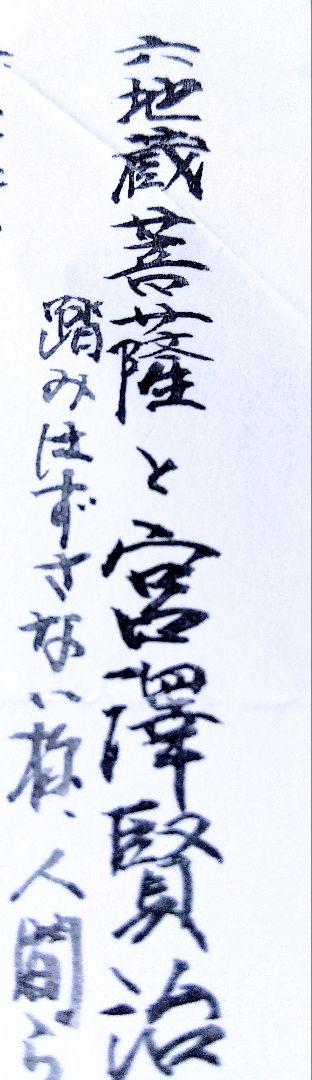 六地蔵菩薩と宮澤賢治
踏みはずさない様、人間ら